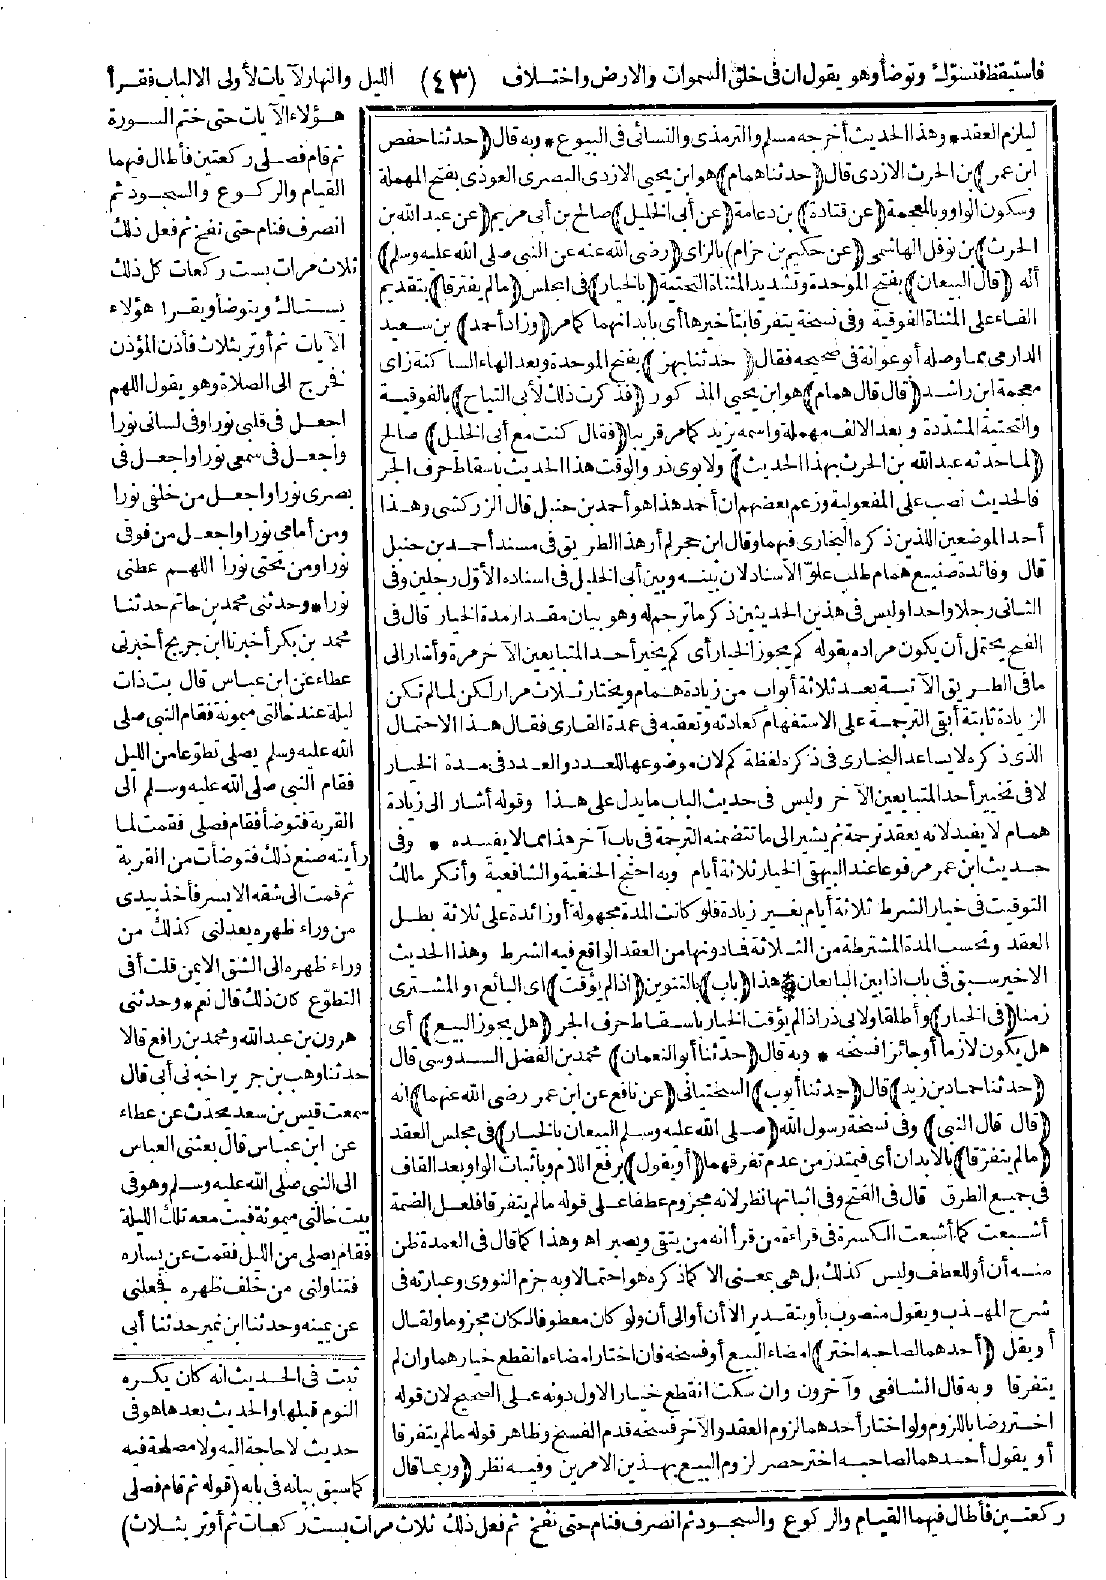 فاستيقظ فتسوّك وتوضأ وهو يقول ان فى خلق السموات والارض واختلاف (٤٣) الليل والنهار لآيات لأولى الالباب فقرأ
هؤلاء الآيات حتى ختم السورة
ثم قام فصلى ركعتين فأطال فيهما
القيام والركوع والسجود ثم
انصرف فنام حتى نفخ ثم فعل ذلك
ثلاث مرات بست ركعات كل ذلك
يستاك ويتوضأ ويقرأ هؤلاء
الآيات ثم أوتر بثلاث فأذن المؤذن
فخرج الى الصلاة وهو يقول اللهم
اجعل فى قلبى نورا وفى لسانى نورا
واجعل فى سمعى نورا واجعل فى
بصرى نورا واجعل من خلفى نورا
ومن أمامى نورا واجعل من فوقى
نورا ومن تحتى نورا اللهم عطنى
نورا * وحدثنى محمد بن حاتم حدثنا
محمد بن بكر أخبرنا ابن جريج أخبرنى
عطاء عن ابن عباس قال بت ذات
ليلة عند خالتى ميمونة فقام النبى صلى
الله عليه وسلم يصلى تطوّعا من الليل
فقام النبى صلى الله عليه وسلم الى
القربة فتوضأ فقام فصلى فقمت لما
رأيته صنع ذلك فتوضأت من القربة
ثم قمت الى شقه الايسر فأخذ بيدى
من وراء ظهره يعدلنى كذلك من
وراء ظهره الى الشق الايمن قلت أفى
التطوّع كان ذلك قال نعم * وحدثنى
هرون بن عبد الله ومحمد بن رافع قالا
حدثنا وهب بن جرير اخبرنى أبى قال
سمعت قيس بن سعد يحدث عن عطاء
عن ابن عباس قال بعثنى العباس
الى النبى صلى الله عليه وسلم وهو فى
بيت خالتى ميمونة فبت معه تلك الليلة
فقام يصلى من الليل فقمت عن يساره
فتناولنى من خلف ظهره فجعلنى
عن يمينه وحدثنا ابن نمير حدثنا أبى
ليلزم العقد * وهذا الحديث أخرجه مسلم والترمذى والنسائى فى البيوع * وبه قال (حدثنا حفص
ابن عمر) بن الحرث الازدى قال (حدثنا همام) هو ابن يحيى الازدى البصرى العوذى بفتح المهملة
وسكون الواو وبالمعجمة (عن قتادة) بن دعامة (عن أبى الخليل) صالح بن أبى مريم (عن عبد الله بن
الحرث) بن نوفل الهاشمى (عن حكيم بن حزام) بالزاى (رضى الله عنه عن النبى صلى الله عليه وسلم)
أنه (قال البيعان) بفتح الموحدة وتشديد المثناة التحتية (بالخيار) فى المجلس (ما لم يفترقا) بتقديم
الفاء على المثناة الفوقية وفى نسخة يتفرقا بتأخيرها أى بأبدانهما كما مر (وزاد أحمد) بن سعيد
الدارمى مما وصله أبو عوانة فى صحيحه فقال (حدثنا بهز) بفتح الموحدة وبعد الهاء الساكنة زاى
معجمة ابن راشد (قال قال همام) هو ابن يحيى المذكور (فذكرت ذلك لأبى التياح) بالفوقية
والتحتية المشددة وبعد الالف مهملة واسمه يزيد كما مر قريبا (فقال كنت مع أبى الخليل) صالح
(لما حدثه عبد الله بن الحرث بهذا الحديث) ولابوى ذر والوقت هذا الحديث باسقاط حرف الجر
فالحديث نصب على المفعولية وزعم بعضهم ان أحمد هذا هو أحمد بن حنبل قال الزركشى وهذا
أحد الموضعين اللذين ذكره البخارى فيهما وقال ابن حجر لم أر هذا الطريق فى مسند أحمد بن حنبل
قال وفائدة صنيع همام طلب علوّ الاسناد لان بينه وبين أبى الخليل فى اسناده الأوّل رجلين وفى
الثانى رجلا واحدا وليس فى هذين الحديثين ذكر ما ترجم له وهو بيان مقدار مدة الخيار قال فى
الفتح يحتمل أن يكون مراده بقوله كم يجوز الخيار أى كم يخير أحد المتبايعين الآخر مرة وأشار الى
ما فى الطريق الآتية بعد ثلاثة أبواب من زيادة همام ويختار ثلاث مرار لكن لما لم تكن
الزيادة ثابتة أبقى الترجمة على الاستفهام كعادته وتعقبه فى عمدة القارى فقال هذا الاحتمال
الذى ذكره لا يساعد البخارى فى ذكره لفظة كم لان موضوعها للعدد والعدد فى مدة الخيار
لا فى تخيير أحد المتبايعين الآخر وليس فى حديث الباب ما يدل على هذا وقوله أشار الى زيادة
همام لا يفيد لانه يعقد ترجمة ثم يشير الى ما تتضمنه الترجمة فى باب آخر هذا مما لا يفيده * وفى
حديث ابن عمر مرفوعا عند البيهقى الخيار ثلاثة أيام وبه احتج الحنفية والشافعية وأنكر مالك
التوقيت فى خيار الشرط ثلاثة أيام بغير زيادة فلو كانت المدة مجهولة أو زائدة على ثلاثة بطل
العقد وتحسب المدة المشترطة من الثلاثة فما دونها من العقد الواقع فيه الشرط وهذا الحديث
الاخير سبق فى باب اذا بين البايعان * هذا (باب) بالتنوين (اذا لم يؤقت) اى البائع او المشترى
زمنا (فى الخيار) وأطلقا ولابى ذر اذا لم يؤقت الخيار باسقاط حرف الجر (هل يجوز البيع) أى
هل يكون لازما أو جائزا فسخه * وبه قال (حدثنا أبو النعمان) محمد بن الفضل السدوسى قال
(حدثنا حماد بن زيد) قال (حدثنا أيوب) السختيانى (عن نافع عن ابن عمر رضى الله عنهما) انه
(قال قال النبى) وفى نسخة رسول الله (صلى الله عليه وسلم البيعان بالخيار) فى مجلس العقد
(ما لم يتفرقا) بالابدان أى فيمتد زمن عدم تفرقهما (أو يقول) برفع اللام وباثبات الواو بعد القاف
فى جميع الطرق قال فى الفتح وفى اثباتها نظر لانه مجزوم عطفا على قوله ما لم يتفرقا فلعل الضمة
أشبعت كما أشبعت الكسرة فى قراءة من قرأ انه من يتقى ويصبر اه وهذا كما قال فى العمدة ظن
منه أن أو للعطف وليس كذلك بل هى بمعنى الا كما ذكره هو احتمالا وبه جزم النووى وعبارته فى
شرح المهذب ويقول منصوب بأو بتقدير الا أن أو الى أن ولو كان معطوفا لكان مجزوما ولقال
أو يقل (أحدهما لصاحبه اختر) امضاء البيع أو فسخه فان اختار امضاءه انقطع خيارهما وان لم
يتفرقا وبه قال الشافعى وآخرون وان سكت انقطع خيار الاول دونه على الصحيح لان قوله
اختر رضا باللزوم ولو اختار أحدهما لزوم العقد والآخر فسخه قدم الفسخ وظاهر قوله ما لم يتفرقا
أو يقول أحدهما لصاحبه اختر حصر لزوم البيع بهذين الامرين وفيه نظر (وربما قال
ثبت فى الحديث انه كان يكره
النوم قبلها والحديث بعدها هو فى
حديث لا حاجة اليه ولا مصلحة فيه
كما سبق بيانه فى بابه (قوله ثم قام فصلى
ركعتين فأطال فيهما القيام والركوع والسجود ثم انصرف فنام حتى نفخ ثم فعل ذلك ثلاث مرات بست ركعات ثم أوتر بثلاث)